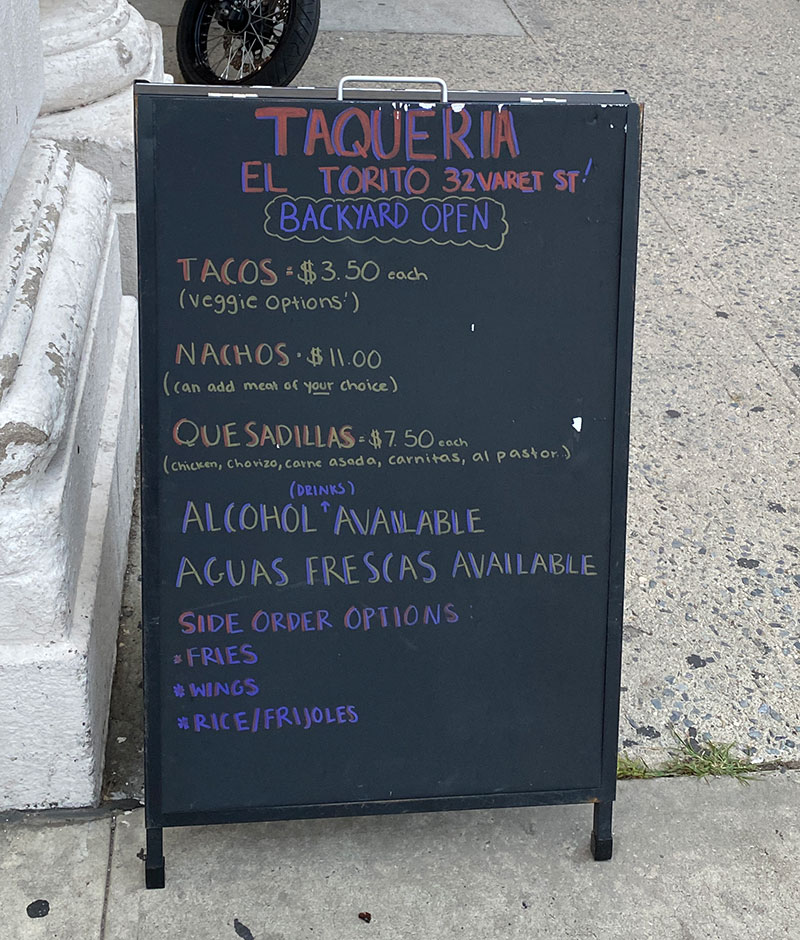 TAQUERIA
EL TORITO 32 VARET ST!
BACKYARD OPEN
TACOS = $3.50 each
(veggie options!)
NACHOS · $11.00
(can add meat of your choice)
QUESADILLAS = $7.50 each
(chicken, chorizo, carne asada, carnitas, al pastor..)
(DRINKS)
ALCOHOL ↑ AVAILABLE
AGUAS FRESCAS AVAILABLE
SIDE ORDER OPTIONS:
*FRIES
*WINGS
*RICE/FRIJOLES